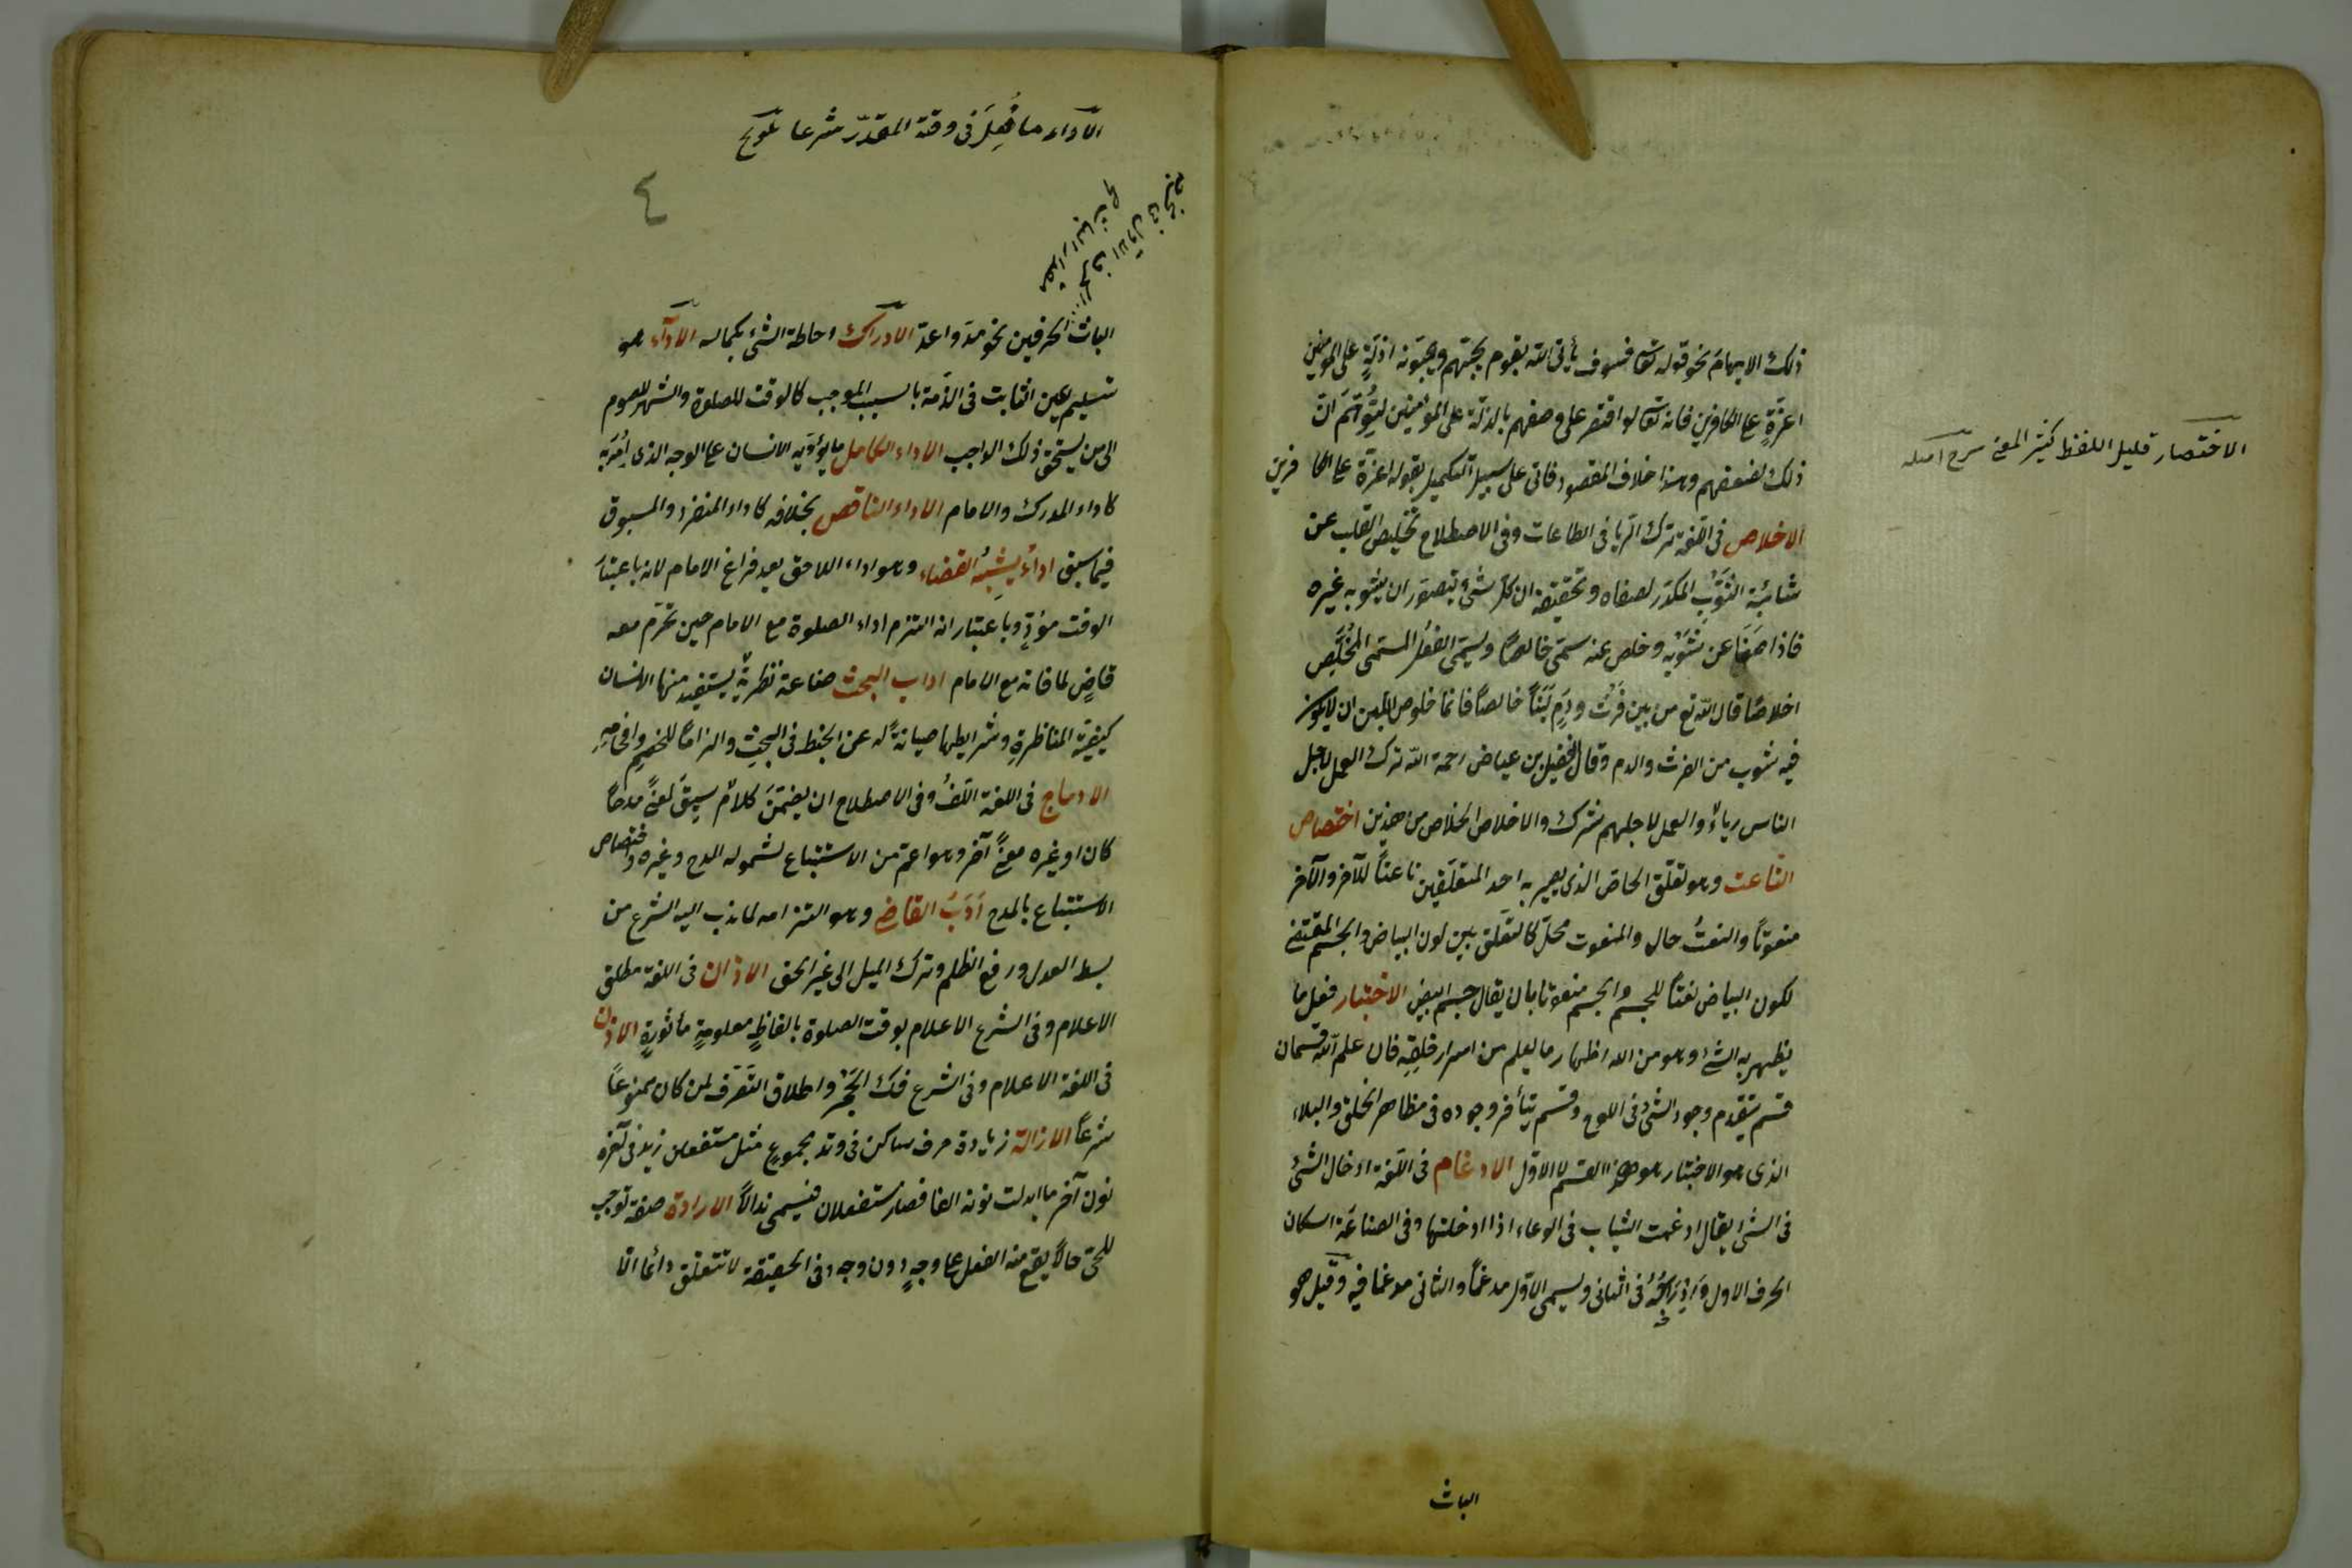 ذلك الايهام نحو قوله تعا فسوف يأتى الله بقوم يحبهم ويحبونه اذلةٍ على المؤمنين
اعزةٍ على الكافرين فانه تعا لو اقتصر على وصفهم بالذلة على المؤمنين لتُوُهّمَ انّ
ذلك لضعفهم وهذا خلاف المقصود فاتى على سبيل التكميل بقوله اعزة على الكافرين
الاخلاص فى اللغة ترك الريا فى الطاعات وفى الاصطلاح تخليص القلب عن
شائبة الشَّوْبِ المكدّر لصفاه وتحقيقه ان كل شئ يتصور ان يشوبه غيره
فاذا صَفَا عن شَوْبِه وخلص عنه سمّى خالصًا ويسمّى الفعل المسمى المُخَلَّص
اخلاصًا قال الله تع من بين فَرْثٍ ودَمٍ لَبَنًا خالصًا فانما خلوص اللبن ان لا يكون
فيه شوب من الفرث والدم وقال الفضيل بن عياض رحمة الله ترك العمل لاجل
الناس رياءٌ والعمل لاجلهم شرك والاخلاص الخلاص من هذين اختصاص
الناعت وهو تعلّق الخاص الذى يصير به احد المتعلّقين ناعتًا للآخر والآخر
منعوتًا والنعتُ حال والمنعوت محلّ كالتعلّق بين لون البياض والجسم المقتضى
لكون البياض نعتًا للجسم والجسم منعوتا بان يقال جسم ابيض الاختبار فعل ما
يظهر به الشئ وهو من الله اظهار ما يعلم من اسرار خلقِه فان علم الله قسمان
قسم يتقدم وجود الشئ فى اللوح وقسم يتأخر وجوده فى مظاهر الخلق والبلاء
الذى هو الاختبار هو هذا القسم لا الاول الادغام فى اللغة ادخال الشئ
فى الشئ يقال ادغمت الثياب فى الوعاء اذا ادخلتها وفى الصناعَة اسكان
الحرف الاول وَاِدْرَاجُهُ فى الثانى ويسمى الاول مدغمًا والثانى مدغما فيه وقيل هو
الباث
الاختصار قليل اللفظ كثير المعنى شرح امثله
الاداء ما فُعِلَ فى وقته المقدّر شرعا تلويح
٤
الباث الحرفين نحو مدّ واعدّ الادراك احاطة الشئ بكماله الاداء هو
تسليم العين الثابت فى الذمة بالسبب الموجب كالوقت للصلوة والشهر للصوم
الى من يستحق ذلك الواجب الاداء الكامل ما يؤدّيه الانسان على الوجه الذى اُمِرَ به
كاداء المدرك والامام الاداء الناقص بخلافه كاداء المنفرد والمسبوق
فيما سبق اداءٌ يشبِهُ القضاء وهو اداء اللاحق بعد فراغ الامام لانه باعتبار
الوقت مؤدٍّ وباعتبار انه التزم اداء الصلوة مع الامام حين تحرّم معه
قاضٍ لما فاته مع الامام اداب البحث صناعة نظريةٌ يستفيد منها الانسان
كيفيّة المناظرةِ وشرايطها صيانةً له عن الخبط فى البحثِ والزامًا للخصمِ وافحامِهِ
الادماج فى اللغة اللفُّ وفى الاصطلاح ان يضمّنَ كلامٌ سِيقَ لمعنًى مدحًا
كان او غيره معنًى آخر وهو اعمّ من الاستتباع لشموله المدح وغيره واختصاص
الاستتباع بالمدح اَدَبُ القاضى وهو التزامه لما ندب اليه الشرع من
بسط العدل ورفع الظلم وترك الميل الى غير الحق الاذان فى اللغة مطلق
الاعلام وفى الشرع الاعلام بوقت الصلوة بالفاظٍ معلومةٍ مأثورةٍ الاذن
فى اللغة الاعلام وفى الشرع فكّ الحَجْرِ واطلاق التصَرّف لمن كان ممنوعًا
شرعًا الازالة زيادة حرف ساكن فى وتد مجموع مثل مستفعلن زيد فى آخره
نون آخر ما ابدلت نونه الفا فصار مستفعلان فيسمى مذالًا الارادة صفة توجب
للحىّ حالًا يقع منه الفعل على وجهٍ دون وجه وفى الحقيقة لا تتعلق دائما الّا